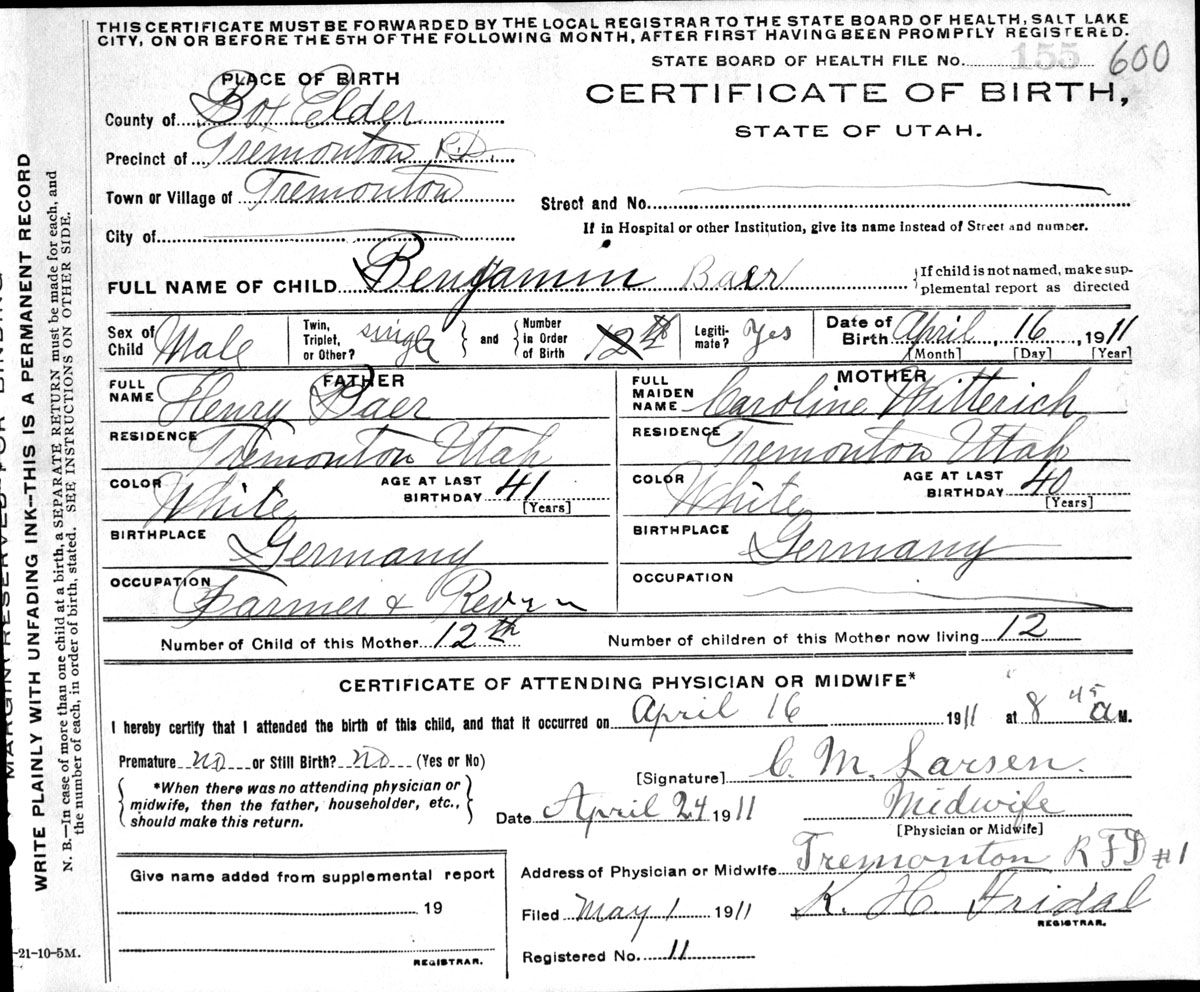 THIS CERTIFICATE MUST BE FORWARDED BY THE LOCAL REGISTRAR TO THE STATE BOARD OF HEALTH, SALT LAKE
CITY, ON OR BEFORE THE 5TH OF THE FOLLOWING MONTH, AFTER FIRST HAVING BEEN PROMPTLY REGISTERED.
STATE BOARD OF HEALTH FILE No. 155 600
PLACE OF BIRTH
CERTIFICATE OF BIRTH,
STATE OF UTAH.
County of Box Elder
Precinct of Tremonton
Town or Village of Tremonton
Street and No.
City of
If in Hospital or other Institution, give its name instead of Street and number.
FULL NAME OF CHILD Benjamin Baer
If child is not named, make sup-
plemental report as directed
Sex of Child Male
Twin, Triplet, or Other? single and Number in Order of Birth
Legiti-mate? Yes
Date of Birth April 16, 1911
[Month] [Day] [Year]
FATHER
FULL NAME Henry Baer
RESIDENCE Tremonton Utah
COLOR White AGE AT LAST BIRTHDAY 41
[Years]
BIRTHPLACE Germany
OCCUPATION Farmer &
MOTHER
FULL MAIDEN NAME Caroline Witterich
RESIDENCE Tremonton Utah
COLOR White AGE AT LAST BIRTHDAY 40
[Years]
BIRTHPLACE Germany
OCCUPATION
Number of Child of this Mother 12th Number of children of this Mother now living 12
CERTIFICATE OF ATTENDING PHYSICIAN OR MIDWIFE*
I hereby certify that I attended the birth of this child, and that it occurred on April 16 1911 at 8 45 a M.
Premature no or Still Birth? no (Yes or No)
*When there was no attending physician or
midwife, then the father, householder, etc.,
should make this return.
[Signature] C. M. Larsen.
Date April 24 1911 Midwife
[Physician or Midwife]
Give name added from supplemental report
19
REGISTRAR.
Address of Physician or Midwife Tremonton RFD #1
Filed May 1 1911 K. H. Fridal
REGISTRAR.
Registered No. 11
WRITE PLAINLY WITH UNFADING INK--THIS IS A PERMANENT RECORD
N. B.—In case of more than one child at a birth, a SEPARATE RETURN must be made for each, and
the number of each, in order of birth, stated. SEE INSTRUCTIONS ON OTHER SIDE.
-21-10-5M.